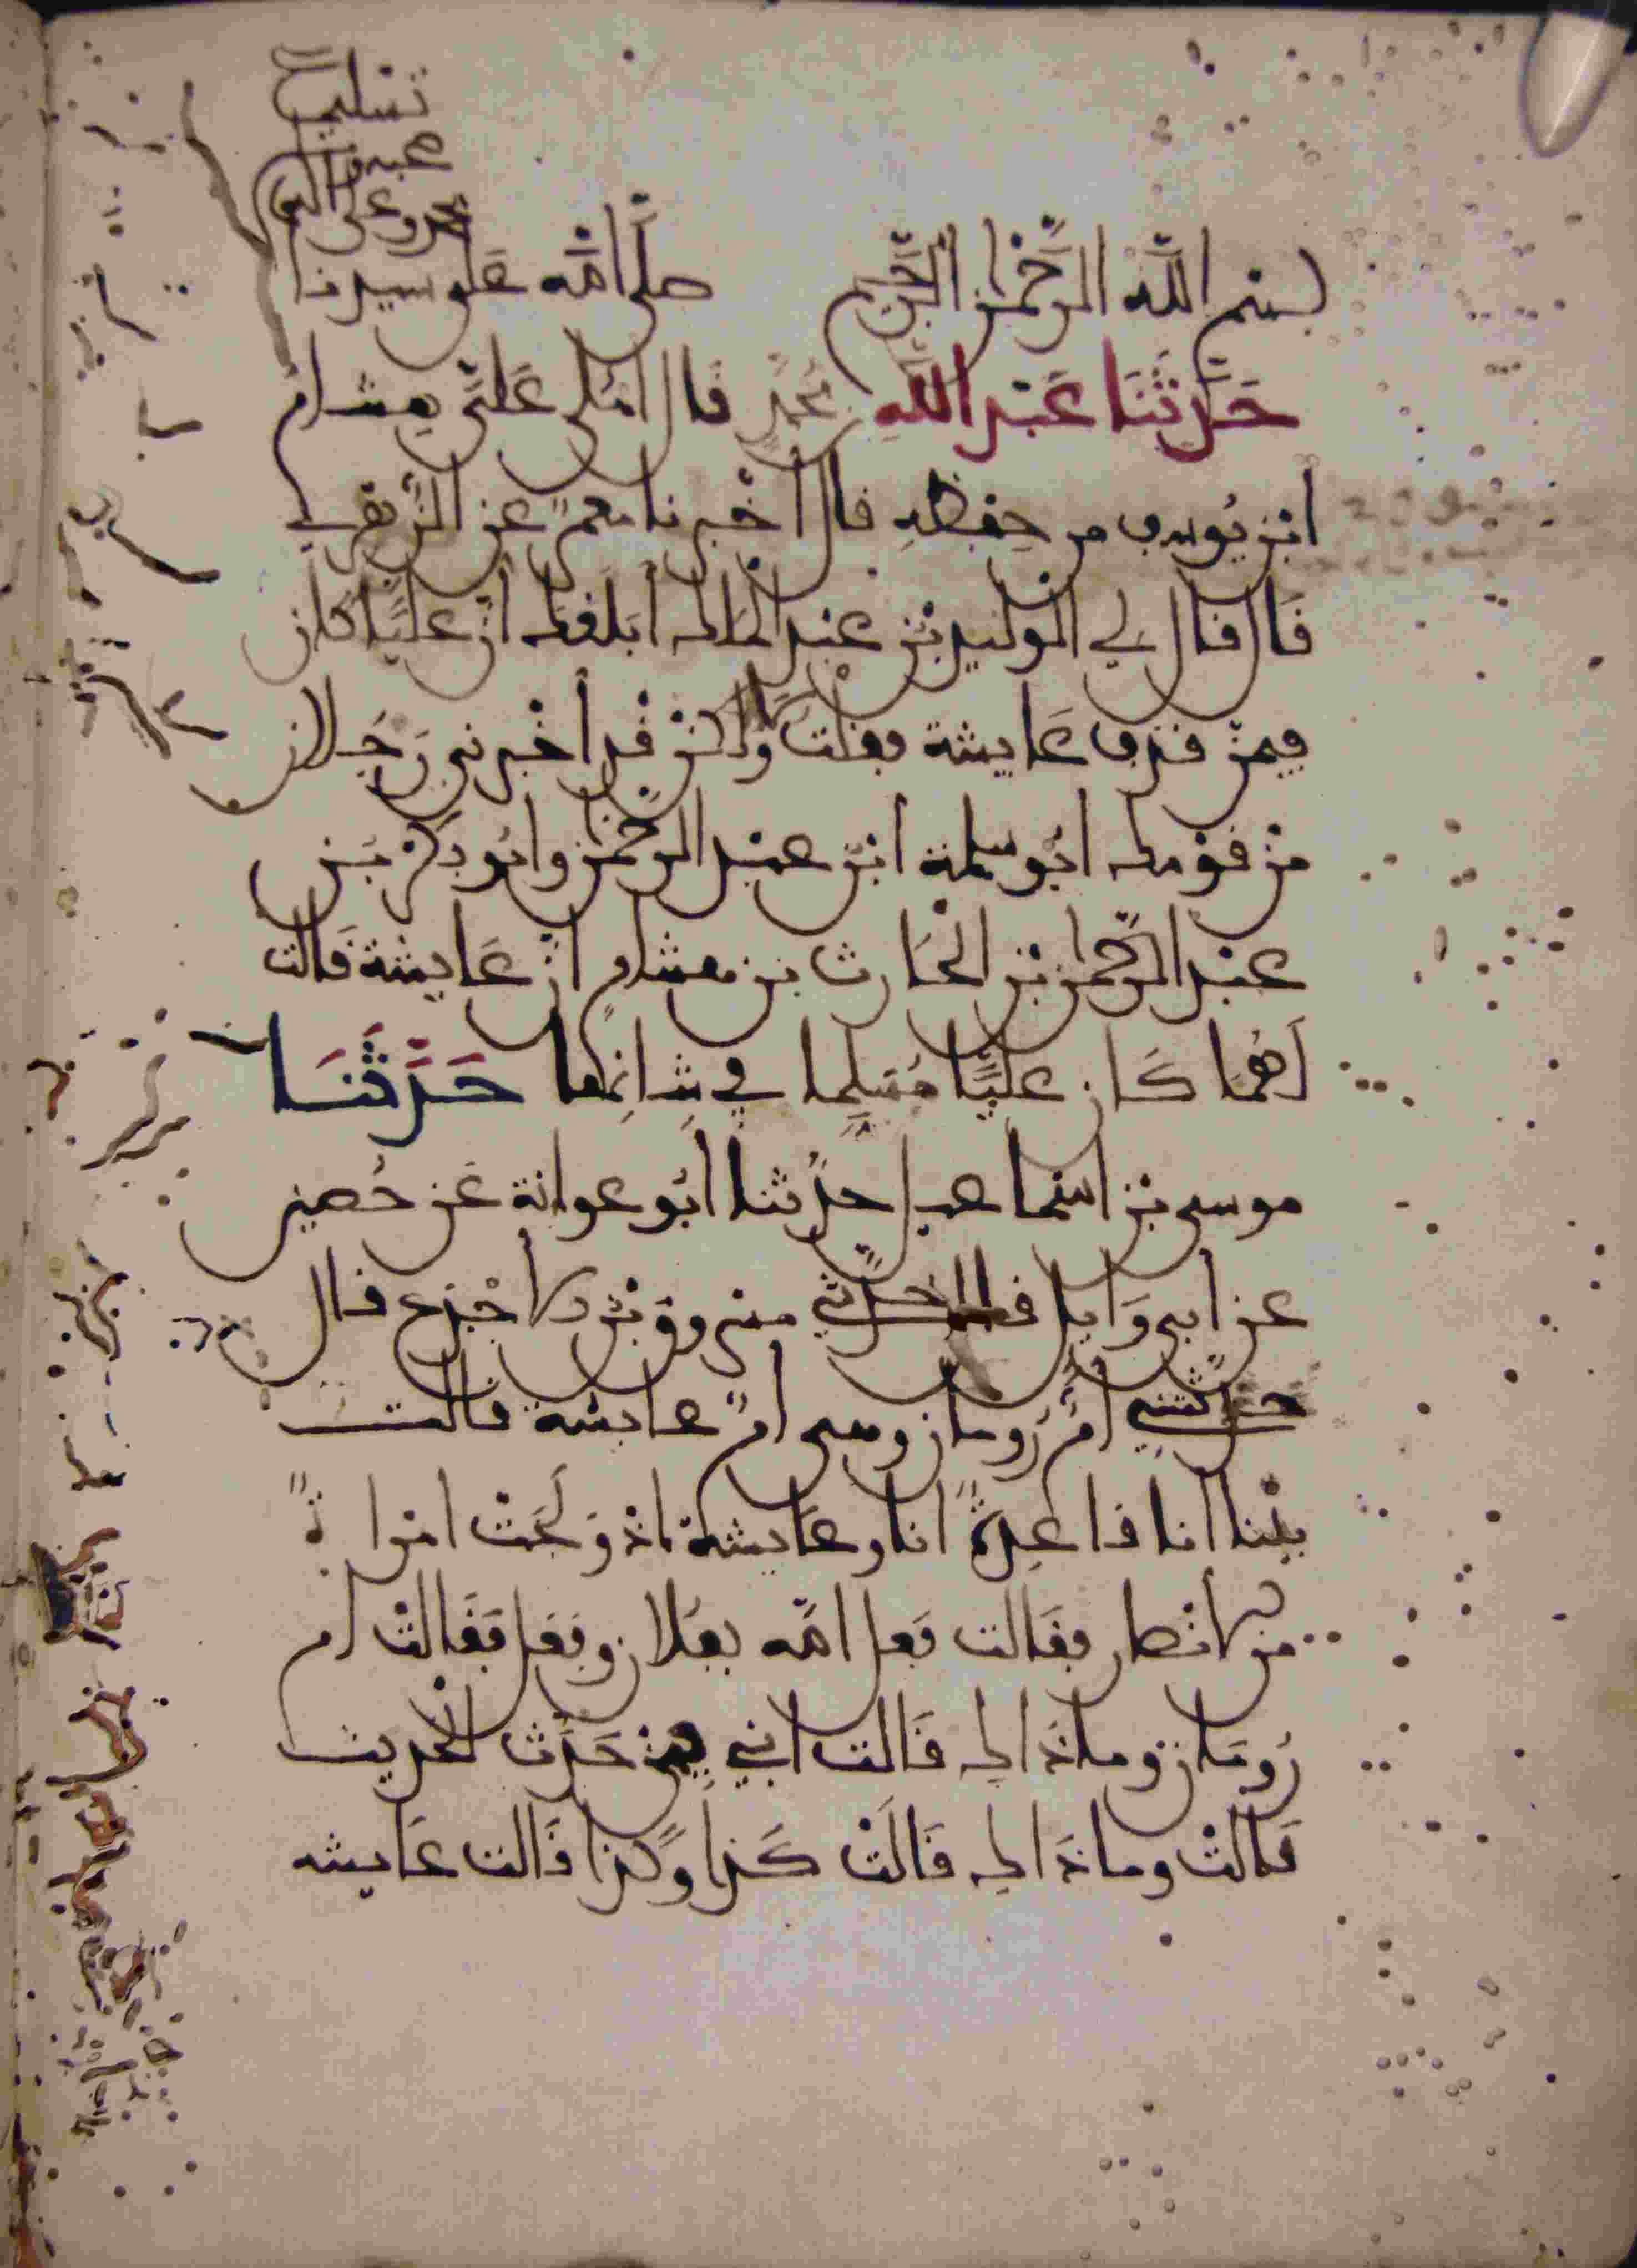 بسم الله الرحمن الرحيم صلى الله على سيدنا
محمد وعلى اله
وصحبه
تسليما
حَدَّثَنَا عَبْد اللهِ بن محمدٍ قال امْلى عَلَىَّ هِشام
ابْن يُوسف من حِفظهِ قال أخْبرنا معمرٌ عن الزُّهْري
قَال قال لي الْوليد بْن عبْد الملك أبَلغك أنَّ عليًا كان
فيمنْ قذف عَايشة فقلت لا ولكنْ قدْ أخْبرني رَجلان
منْ قوْمك أبُو سلمة ابْن عبْد الرَّحمن وابُو بكْر بْن
عبْد الرَّحمن بْن الْحَارث بْن هشامٍ أنَّ عَايشة قَالت
لَهُما كَان عليًّا مُسَلِّما في شانِها حَدَّثَنَا
موسى بْن اسْماعيل حدَّثنا أبُو عوانة عَن حُصين
عن أبي وَايل قال حدَّثني مسْروق بْن الأجْدع قال
حدَّثتْني أمُّ رُومان وهي أمُّ عايشة قالت
بيْنا أنا قاعِدةٌ أنا وعَايشة اذ وَلَجَتْ امْراةٌ
من الأنْصار فقَالت فَعل الله بفُلان وفعَل فقَالتْ أم
رُومَان وماذاك قَالت ابْني فِيمنْ حَدَّث الحديث
قَالتْ وماذَاك قَالَتْ كَذا وَكذا قَالت عَايشه